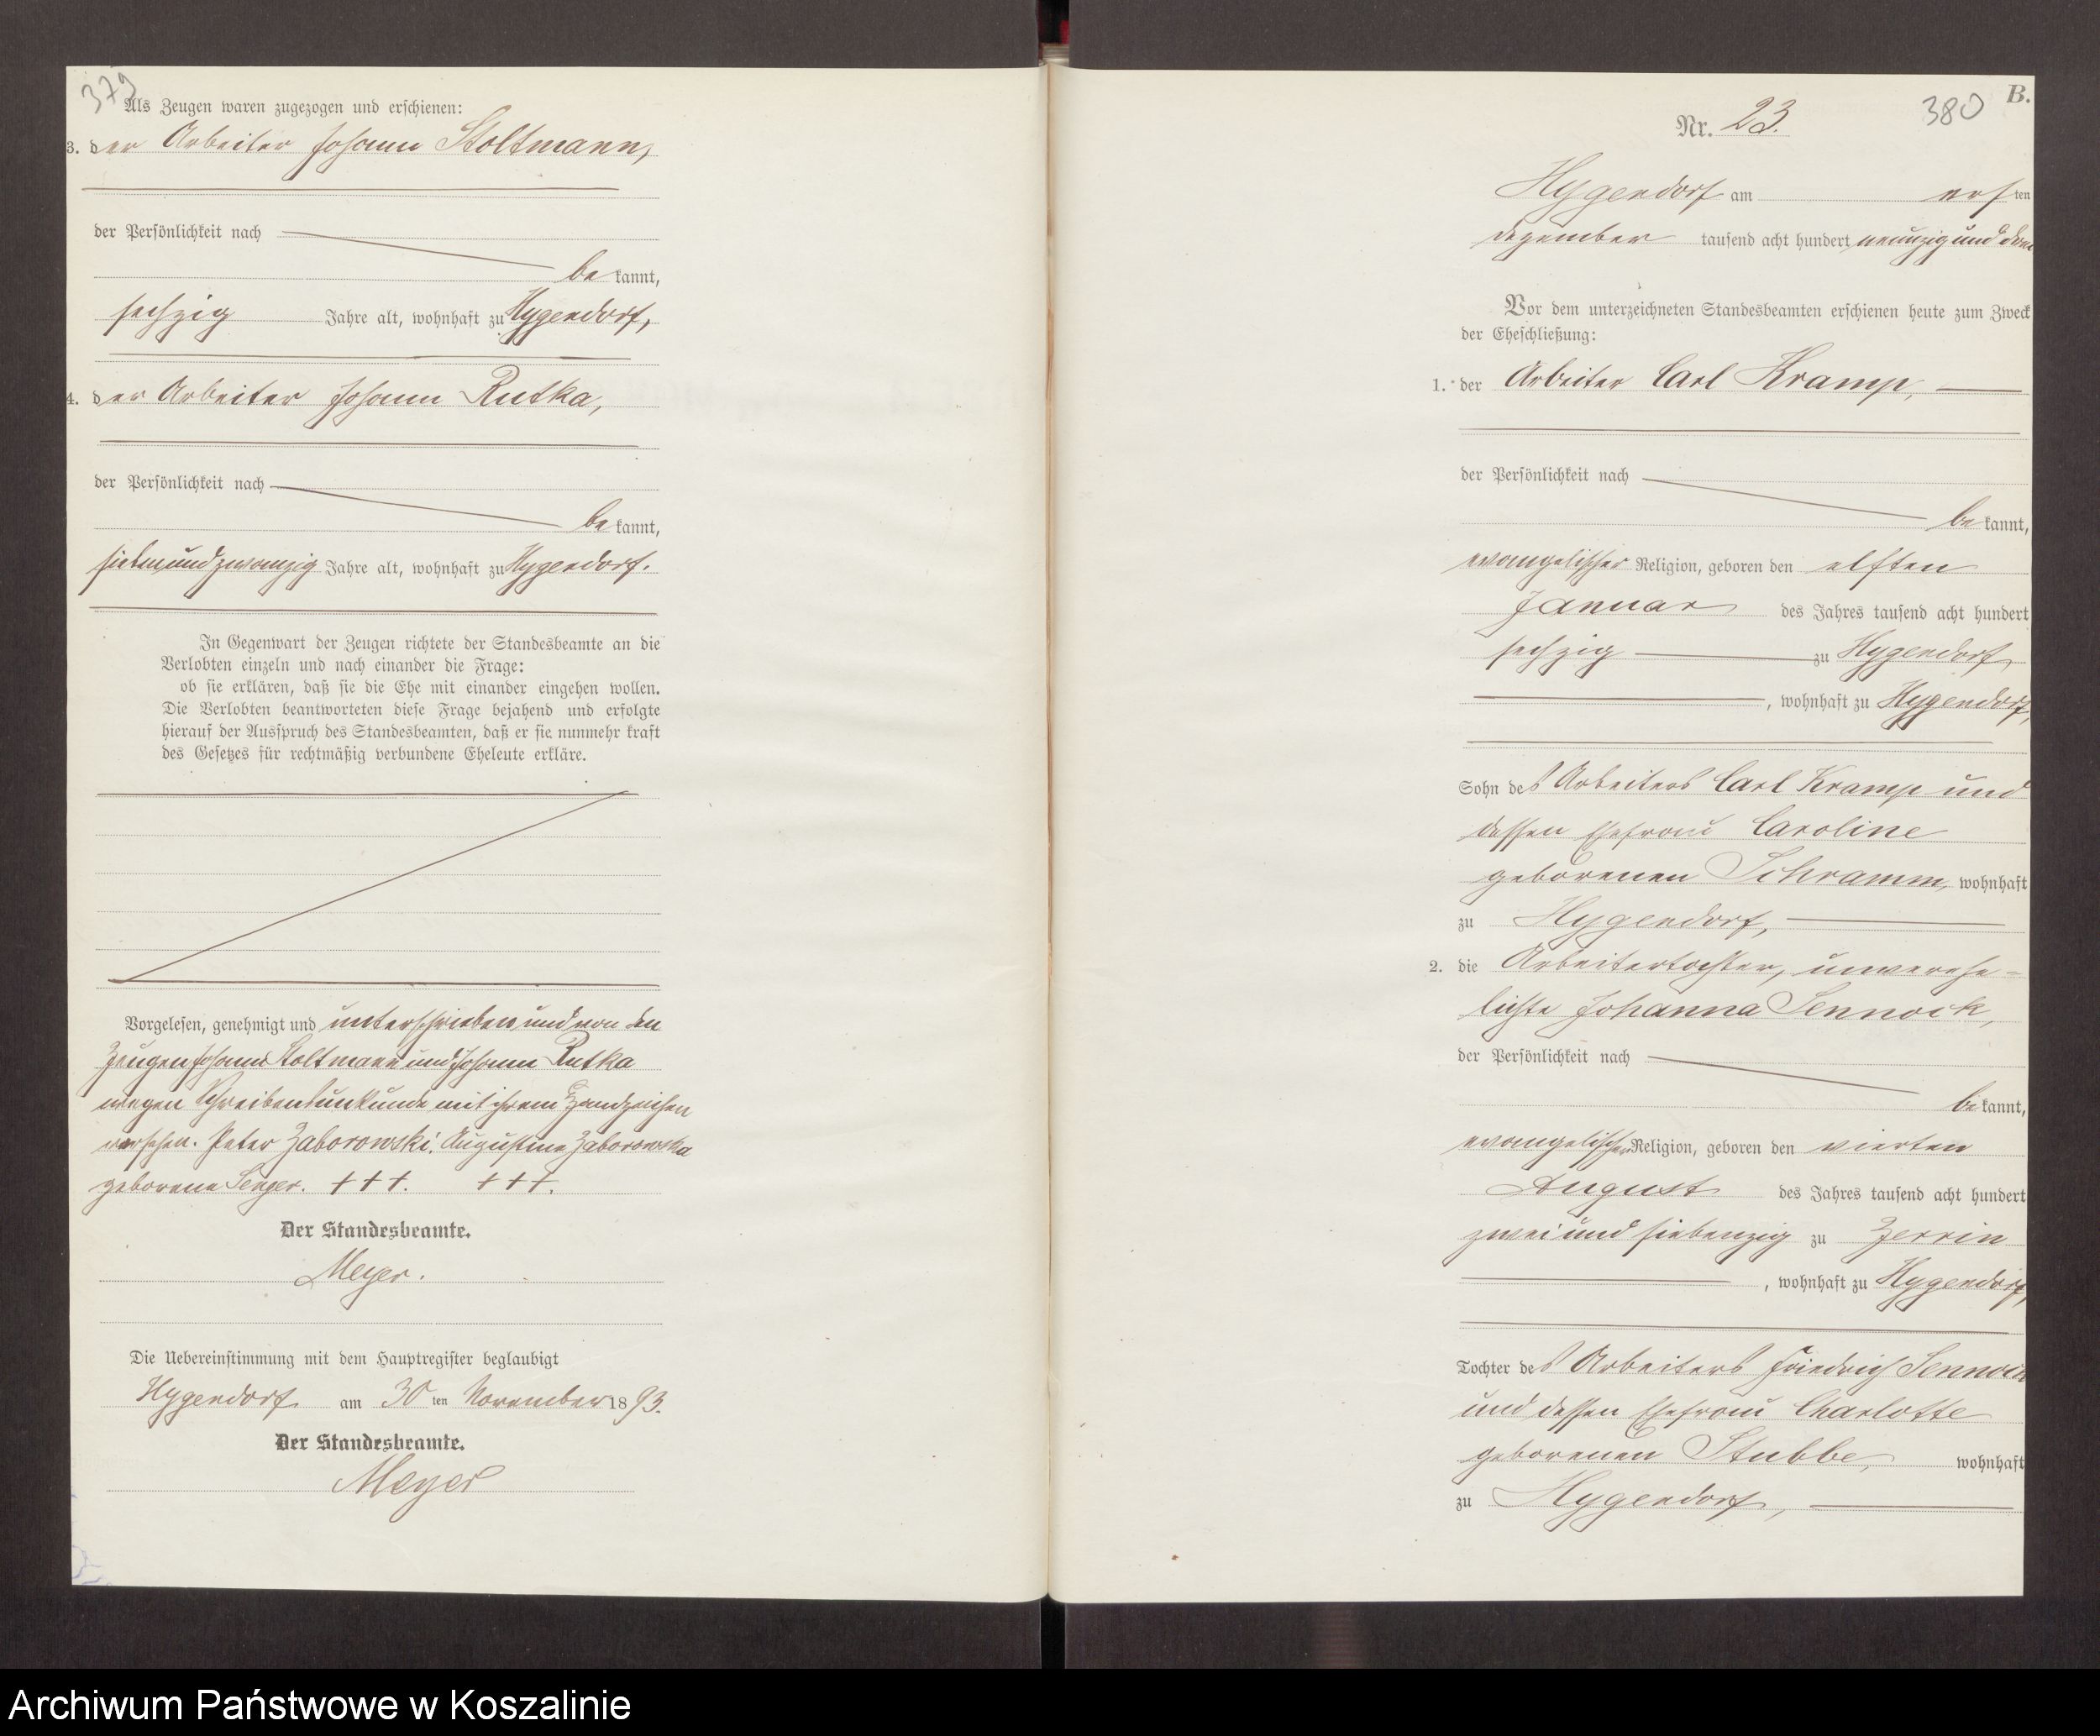 379
Als Zeugen waren zugezogen und erschienen:
3. der Arbeiter Johann Stoltmann,
der Persönlichkeit nach
bekannt,
sechzig Jahre alt, wohnhaft zu Hygendorf,
4. der Arbeiter Johann Rutka,
der Persönlichkeit nach
bekannt,
siebenundzwanzig Jahre alt, wohnhaft zu Hygendorf.
In Gegenwart der Zeugen richtete der Standesbeamte an die
Verlobten einzeln und nach einander die Frage:
ob sie erklären, daß sie die Ehe mit einander eingehen wollen.
Die Verlobten beantworteten diese Frage bejahend und erfolgte
hierauf der Ausspruch des Standesbeamten, daß er sie nunmehr kraft
des Gesetzes für rechtmäßig verbundene Eheleute erkläre.
Vorgelesen, genehmigt und unterschrieben und von den
Zeugen Johann Stoltmann und Johann Rutka
wegen Schreibensunkunde mit ihrem Handzeichen
versehen. Peter Zaborowski. Augustine Zaborowska
geborene Senger. +++. +++.
Der Standesbeamte.
Meyer.
Die Uebereinstimmung mit dem Hauptregister beglaubigt
Hygendorf am 30ten November 1893.
Der Standesbeamte.
Meyer
B.
380
Nr. 23.
Hygendorf am ersten
Dezember tausend acht hundert neunzig und drei
Vor dem unterzeichneten Standesbeamten erschienen heute zum Zweck
der Eheschließung:
1. der Arbeiter Carl Kramp,
der Persönlichkeit nach
bekannt,
evangelischer Religion, geboren den elften
Januar des Jahres tausend acht hundert
sechzig zu Hygendorf
, wohnhaft zu Hygendorf,
Sohn des Arbeiters Carl Kramp und
dessen Ehefrau Caroline
geborenen Schramm, wohnhaft
zu Hygendorf,
2. die Arbeitertochter, unverehe-
lichte Johanna Sennock,
der Persönlichkeit nach
bekannt,
evangelischer Religion, geboren den vierten
August des Jahres tausend acht hundert
zwei und siebenzig zu Zerrin
, wohnhaft zu Hygendorf,
Tochter des Arbeiters Friedrich Sennock
und dessen Ehefrau Charlotte
geborenen Stubbe, wohnhaft
zu Hygendorf,
Archiwum Państwowe w Koszalinie